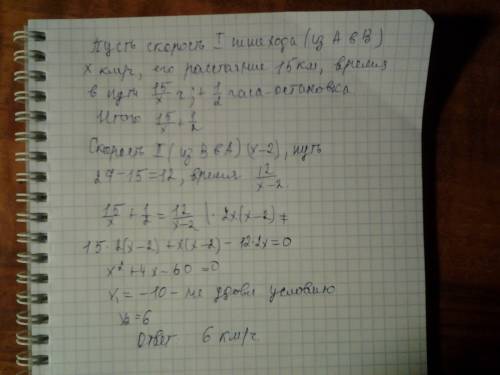 Пусть скорость I пешехода (из А в В)
х км/ч, его расстояние 15 км, время
в пути 15/x ч; + 1/2 часа - остановка
Итого 15/x + 1/2
Скорость II (из В в А) (х-2), путь
27-15=12, время 12/x-2.
15/x + 1/2 = 12/x-2 | · 2x(x-2) ≠
15·2(x-2) + x(x-2) - 12·2x = 0
x² + 4x - 60 = 0
x₁ = -10 - не удовл условию
x₂ = 6
Ответ 6 км/ч